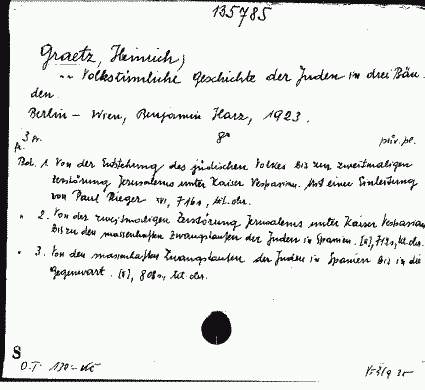 135785
Graetz, Heinrich,
Volkstümliche Geschichte der Juden in drei Bän-
den.
Berlin – Wien, Benjamin Harz, 1923.
3 8°
Bd. 1. Von der Entstehung des jüdischen Volkes bis zur zweitmaligen
Zerstörung Jerusalems unter Kaiser Vespasian. Mit einer Einleitung
von Paul Rieger XVI, 716 s., tit. obr.
" 2. Von der zweitmaligen Zerstörung Jerusalems unter Kaiser Vespasian
bis zu den massenhaften Zwangstaufen der Juden in Spanien. [8], 712 s., tit. obr.
" 3. Von den massenhaften Zwangstaufen der Juden in Spanien bis in die
Gegenwart. [8], 808 s., tit. obr.
S
O.T. 130